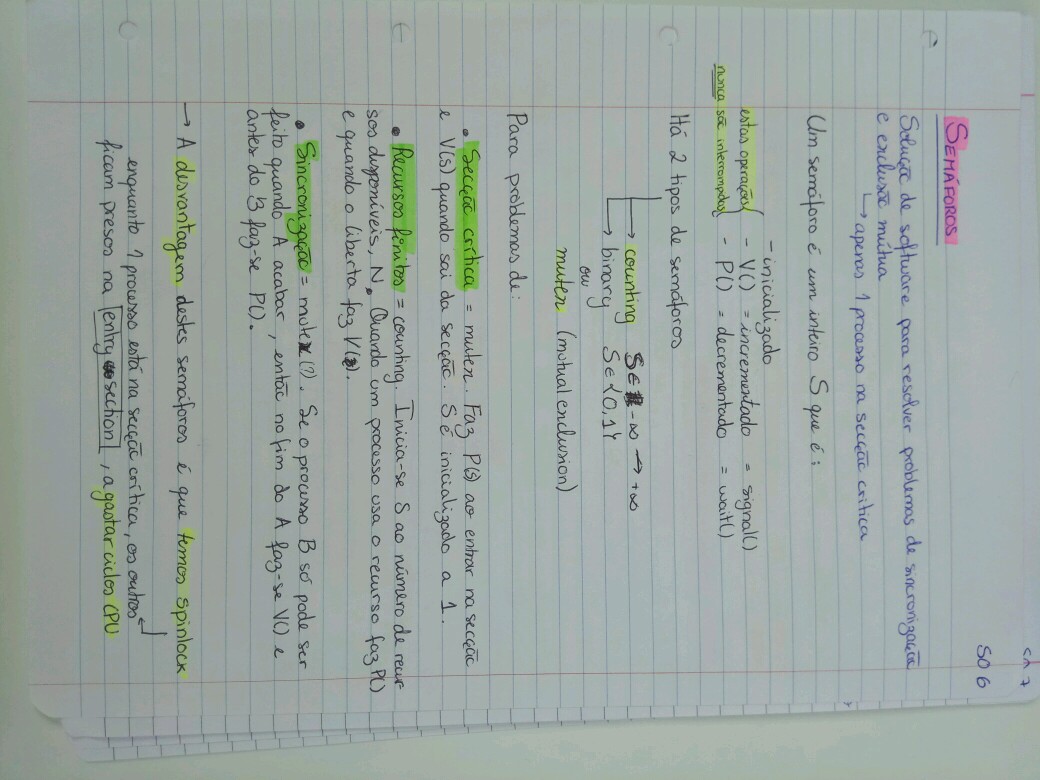 Ch 7
SO 6
SEMÁFOROS
Solução de software para resolver problemas de sincronização
e exclusão mútua
↳ apenas 1 processo na secção crítica
Um semáforo é um inteiro S que é:
- inicializado
estas operações - V() = incrementado = signal()
nunca são interrompidas - P() = decrementado = wait()
Há 2 tipos de semáforos
→ counting S ∈ -∞ → +∞
→ binary S ∈ {0,1}
ou
mutex (mutual exclusion)
Para problemas de:
• Secção crítica = mutex. Faz P(s) ao entrar na secção
e V(s) quando sai da secção. S é inicializado a 1.
• Recursos finitos = counting. Inicia-se S ao número de recur-
sos disponíveis, N. Quando um processo usa o recurso faz P()
e quando o liberta faz V().
• Sincronização = mutex (?). Se o processo B só pode ser
feito quando A acabar, então no fim do A faz-se V() e
antes do B faz-se P().
→ A desvantagem destes semáforos é que temos spinlock
enquanto 1 processo está na secção crítica, os outros
ficam presos na entry section, a gastar ciclos CPU